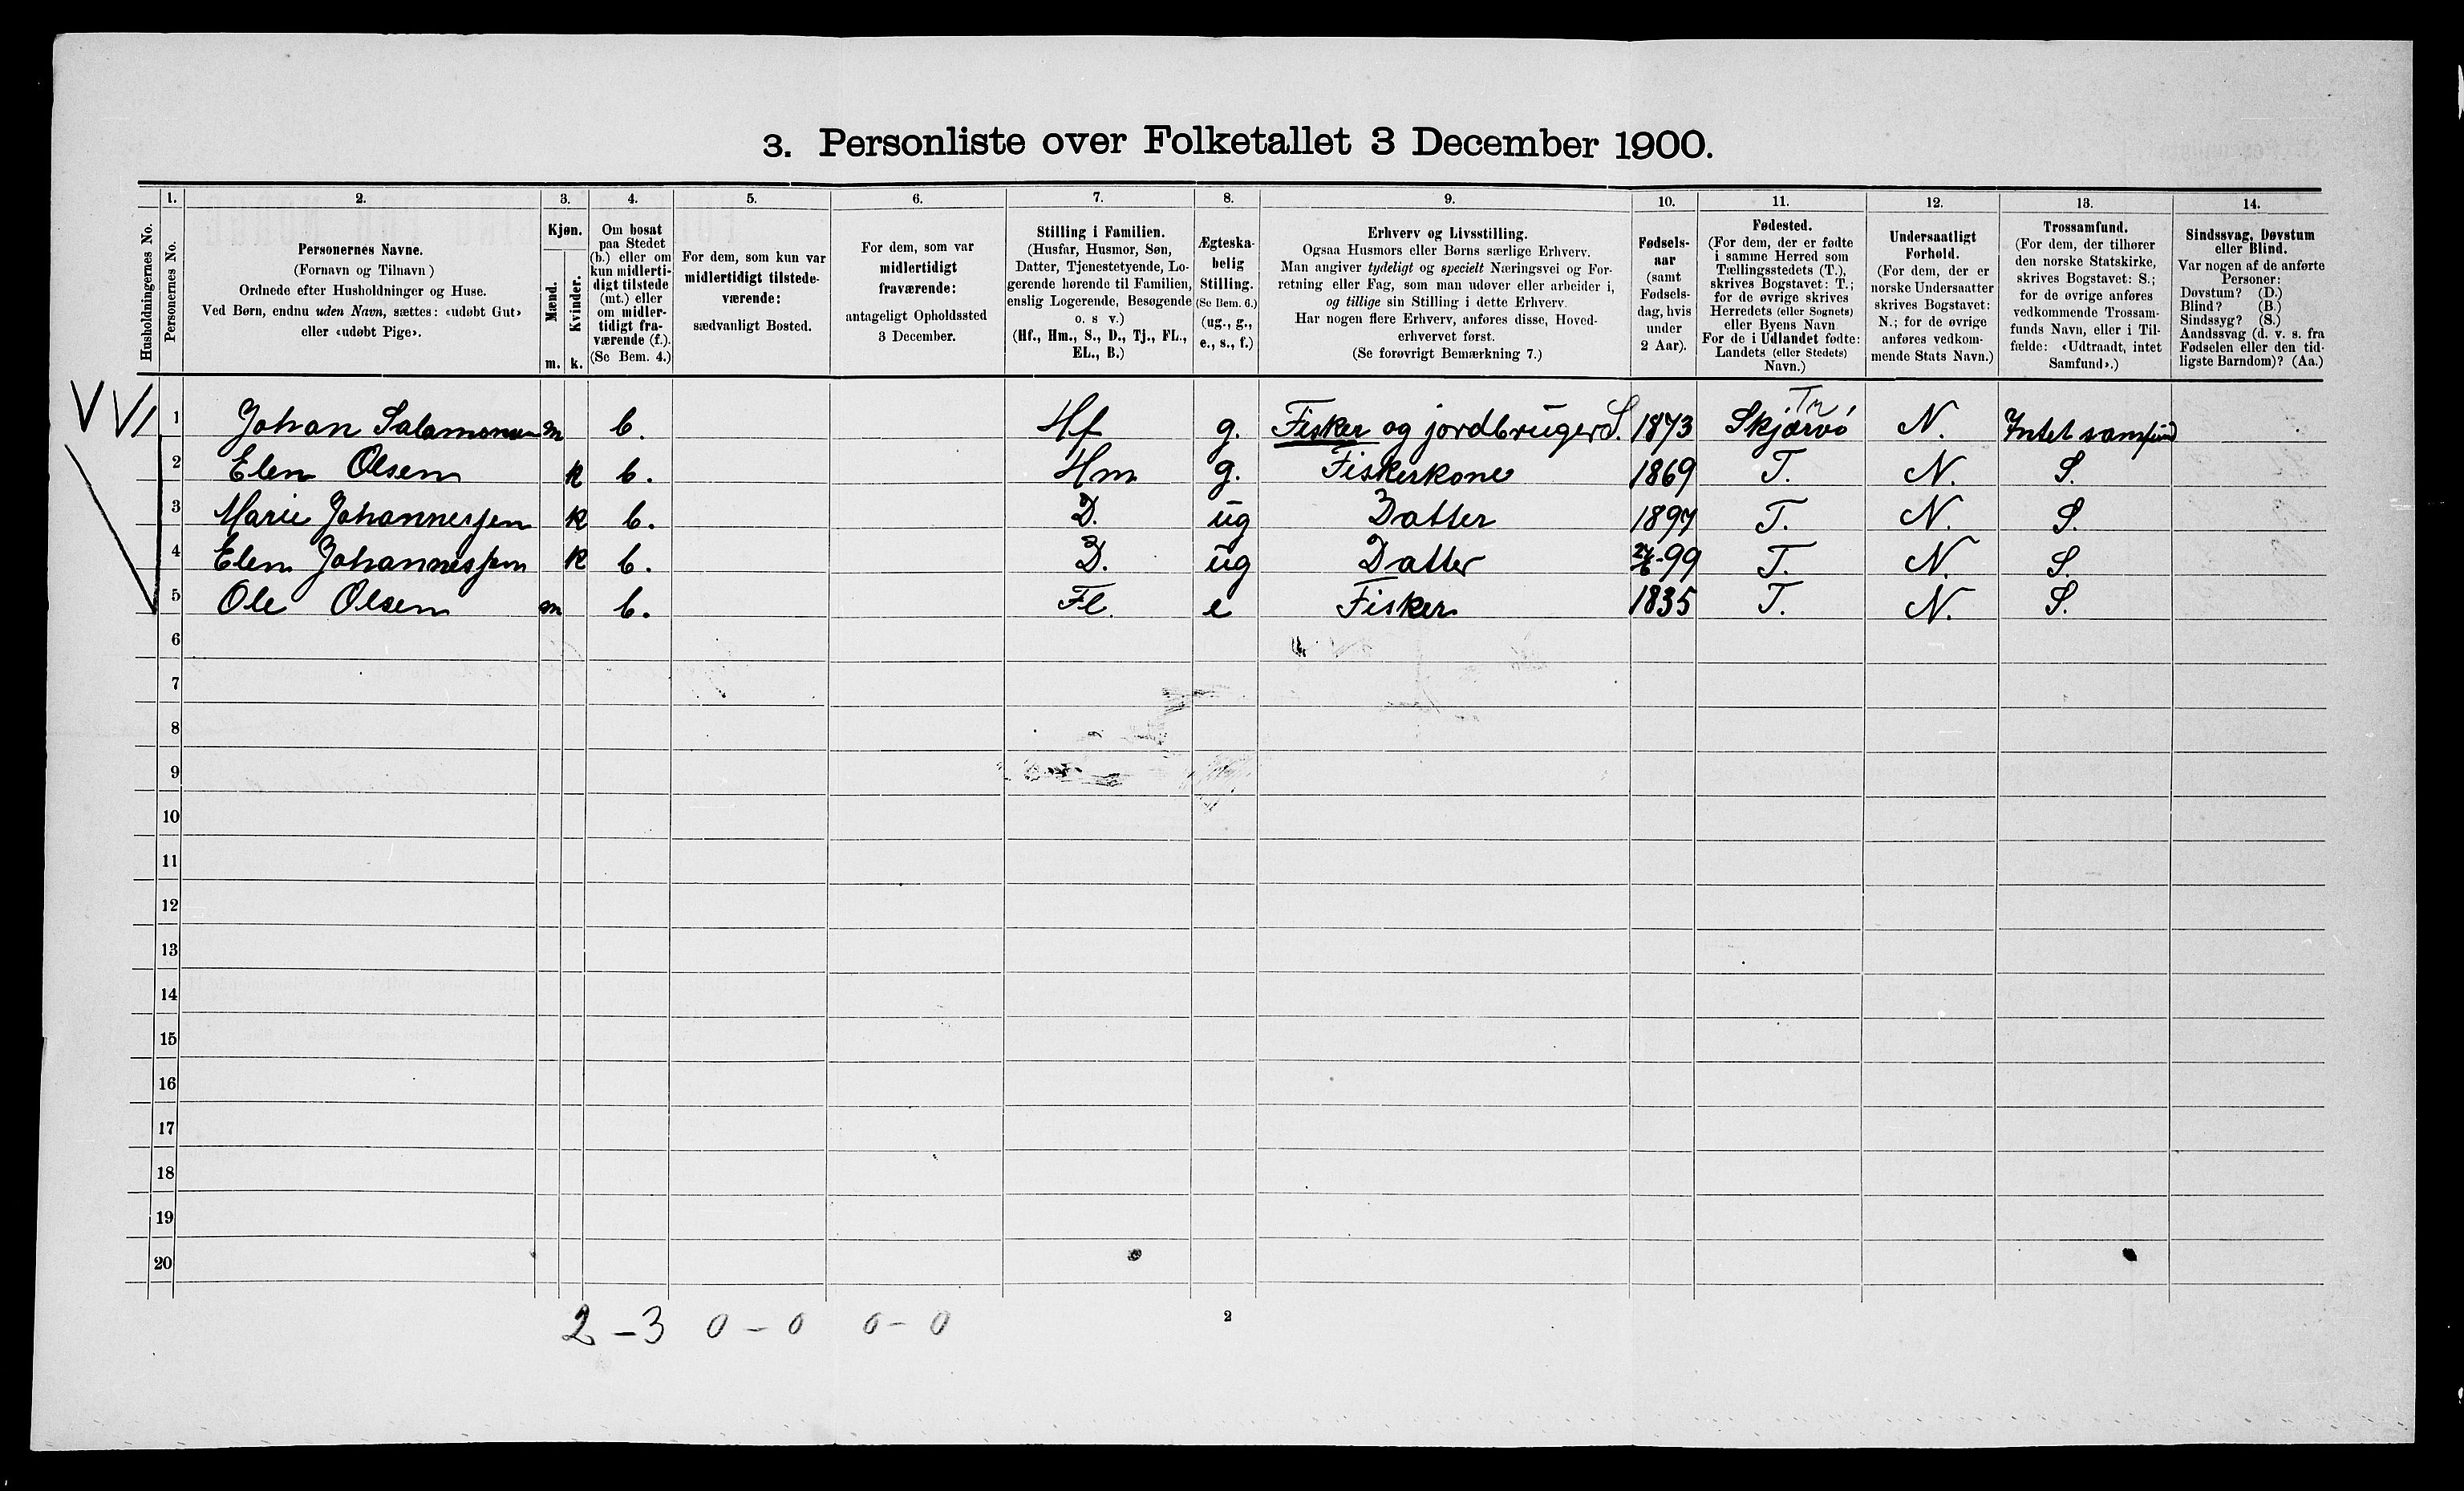 3. Personliste over Folketallet 3 December 1900.
Husholdningernes No.
1.
Personernes No.
2.
Personernes Navne.
(Fornavn og Tilnavn)
Ordnede efter Husholdninger og Huse.
Ved Børn, endnu uden Navn, sættes: «udøbt Gut»
eller «udøbt Pige».
3.
Kjøn.
Mænd.
m.
Kvinder.
k.
4.
Om bosat
paa Stedet
(b.) eller om
kun midlerti-
digt tilstede
(mt.) eller
om midler-
tidigt fra-
værende (f.).
(Se Bem. 4.)
5.
For dem, som kun var
midlertidigt tilstede-
værende:
sædvanligt Bosted.
6.
For dem, som var
midlertidigt
fraværende:
antageligt Opholdssted
3 December.
7.
Stilling i Familien.
(Husfar, Husmor, Søn,
Datter, Tjenestetyende, Lo-
gerende hørende til Familien,
enslig Logerende, Besøgende
o. s v.)
(Hf., Hm., S., D., Tj., FL.,
EL., B.)
8.
Ægteska-
belig
Stilling.
(Se Bem. 6.)
(ug., g.,
e., s., f.)
9.
Erhverv og Livsstilling.
Ogsaa Husmors eller Børns særlige Erhverv.
Man angiver tydeligt og specielt Næringsvei og For-
retning eller Fag, som man udøver eller arbeider i,
og tillige sin Stilling i dette Erhverv.
Har nogen flere Erhverv, anføres disse, Hoved-
erhvervet først.
(Se forøvrigt Bemærkning 7.)
10.
Fødsels-
aar
(samt
Fødsels-
dag, hvis
under
2 Aar).
11.
Fødested.
(For dem, der er fødte
i samme Herred som
Tællingsstedets (T.),
skrives Bogstavet: T.;
for de øvrige skrives
Herredets (eller Sognets)
eller Byens Navn
For de i Udlandet fødte:
Landets (eller Stedets)
Navn.)
12.
Undersaatligt
Forhold.
(For dem, der er
norske Undersaatter
skrives Bogstavet:
N.; for de øvrige
anføres vedkom-
mende Stats Navn.)
13.
Trossamfund.
(For dem, der tilhører
den norske Statskirke,
skrives Bogstavet: S.;
for de øvrige anføres
vedkommende Trossam-
funds Navn, eller i Til-
fælde: «Udtraadt, intet
Samfund».)
14.
Sindssvag, Døvstum
eller Blind.
Var nogen af de anførte
Personer:
Døvstum? (D.)
Blind? (B.)
Sindssyg? (S.)
Aandssvag (d. v. s. fra
Fødselen eller den tid-
ligste Barndom)? (Aa.)
1 1 Johan Salamonsen m b. Hf g. Fisker og jordbruger S. 1873 Skjærvö Tr. N. Intet samfund
2 Elen Olsen k b. Hm g. Fiskerkone 1869 T. N. S.
3 Marie Johannessen k b. D. ug Datter 1897 T. N. S.
4 Elen Johannessen k b. D. ug Datter 24/6-99 T. N. S.
5 Ole Olsen m b. Fl. e Fisker 1835 T. N. S.
6
7
8
9
10
11
12
13
14
15
16
17
18
19
20
2 - 3 0 - 0 0 - 0
2